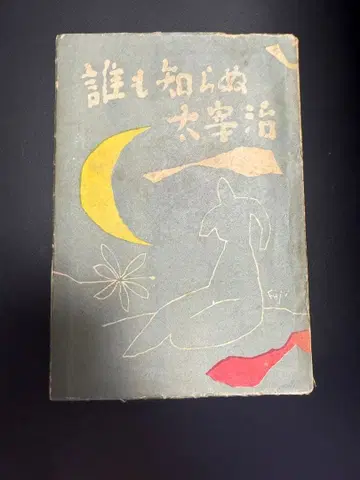 誰も知らぬ
太宰治
Fuji